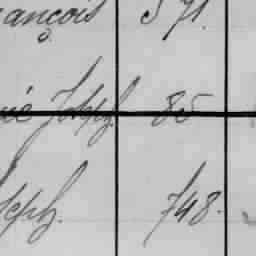 ançois 571.
né Joseph 85
Joseph. 748.